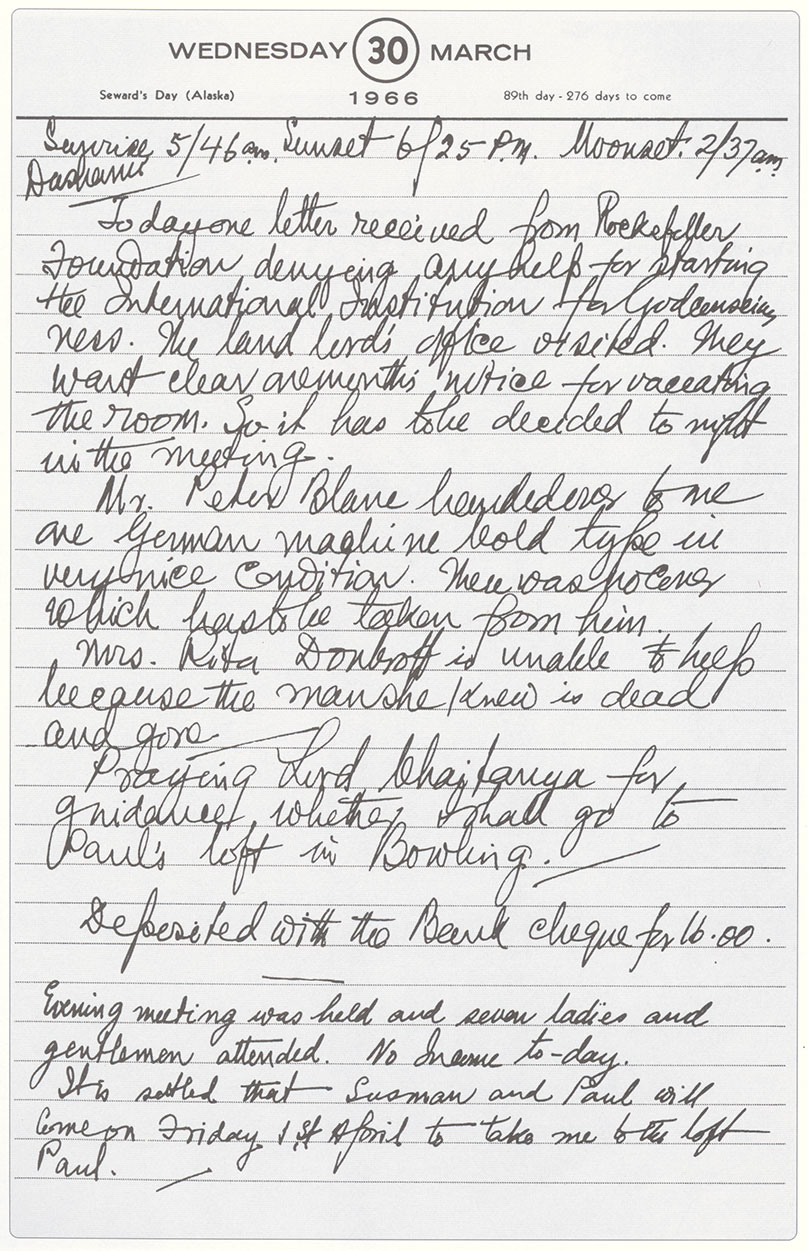 WEDNESDAY 30 MARCH
Seward's Day (Alaska) 1966 89th day - 276 days to come
Sunrise 5/46 am. Sunset 6/25 P.M. Moonset: 2/37 am
Dashami
To day one letter received from Rockefeller
Foundation denying any help for starting
the International Institution for Godconscious
ness. The land lord's office visited. They
want clear one months notice for vaccating
the room. So it has to be decided to night
in the meeting.
Mr. Peter Blane handed over to me
one German machine bold type in
very nice condition. There was no cover
which has to be taken from him.
Mrs. Rita is unable to help
because the man she knew is dead
and gone
Praying Lord Chaitanya for
guidance, whether I shall go to
Paul's loft in Bowling.
Deposited with the Bank cheque for 16.00.
Evening meeting was held and seven ladies and
gentlemen attended. No Income to-day.
It is settled that Susman and Paul will
Come on Friday 1st April to take me to the loft
Paul.